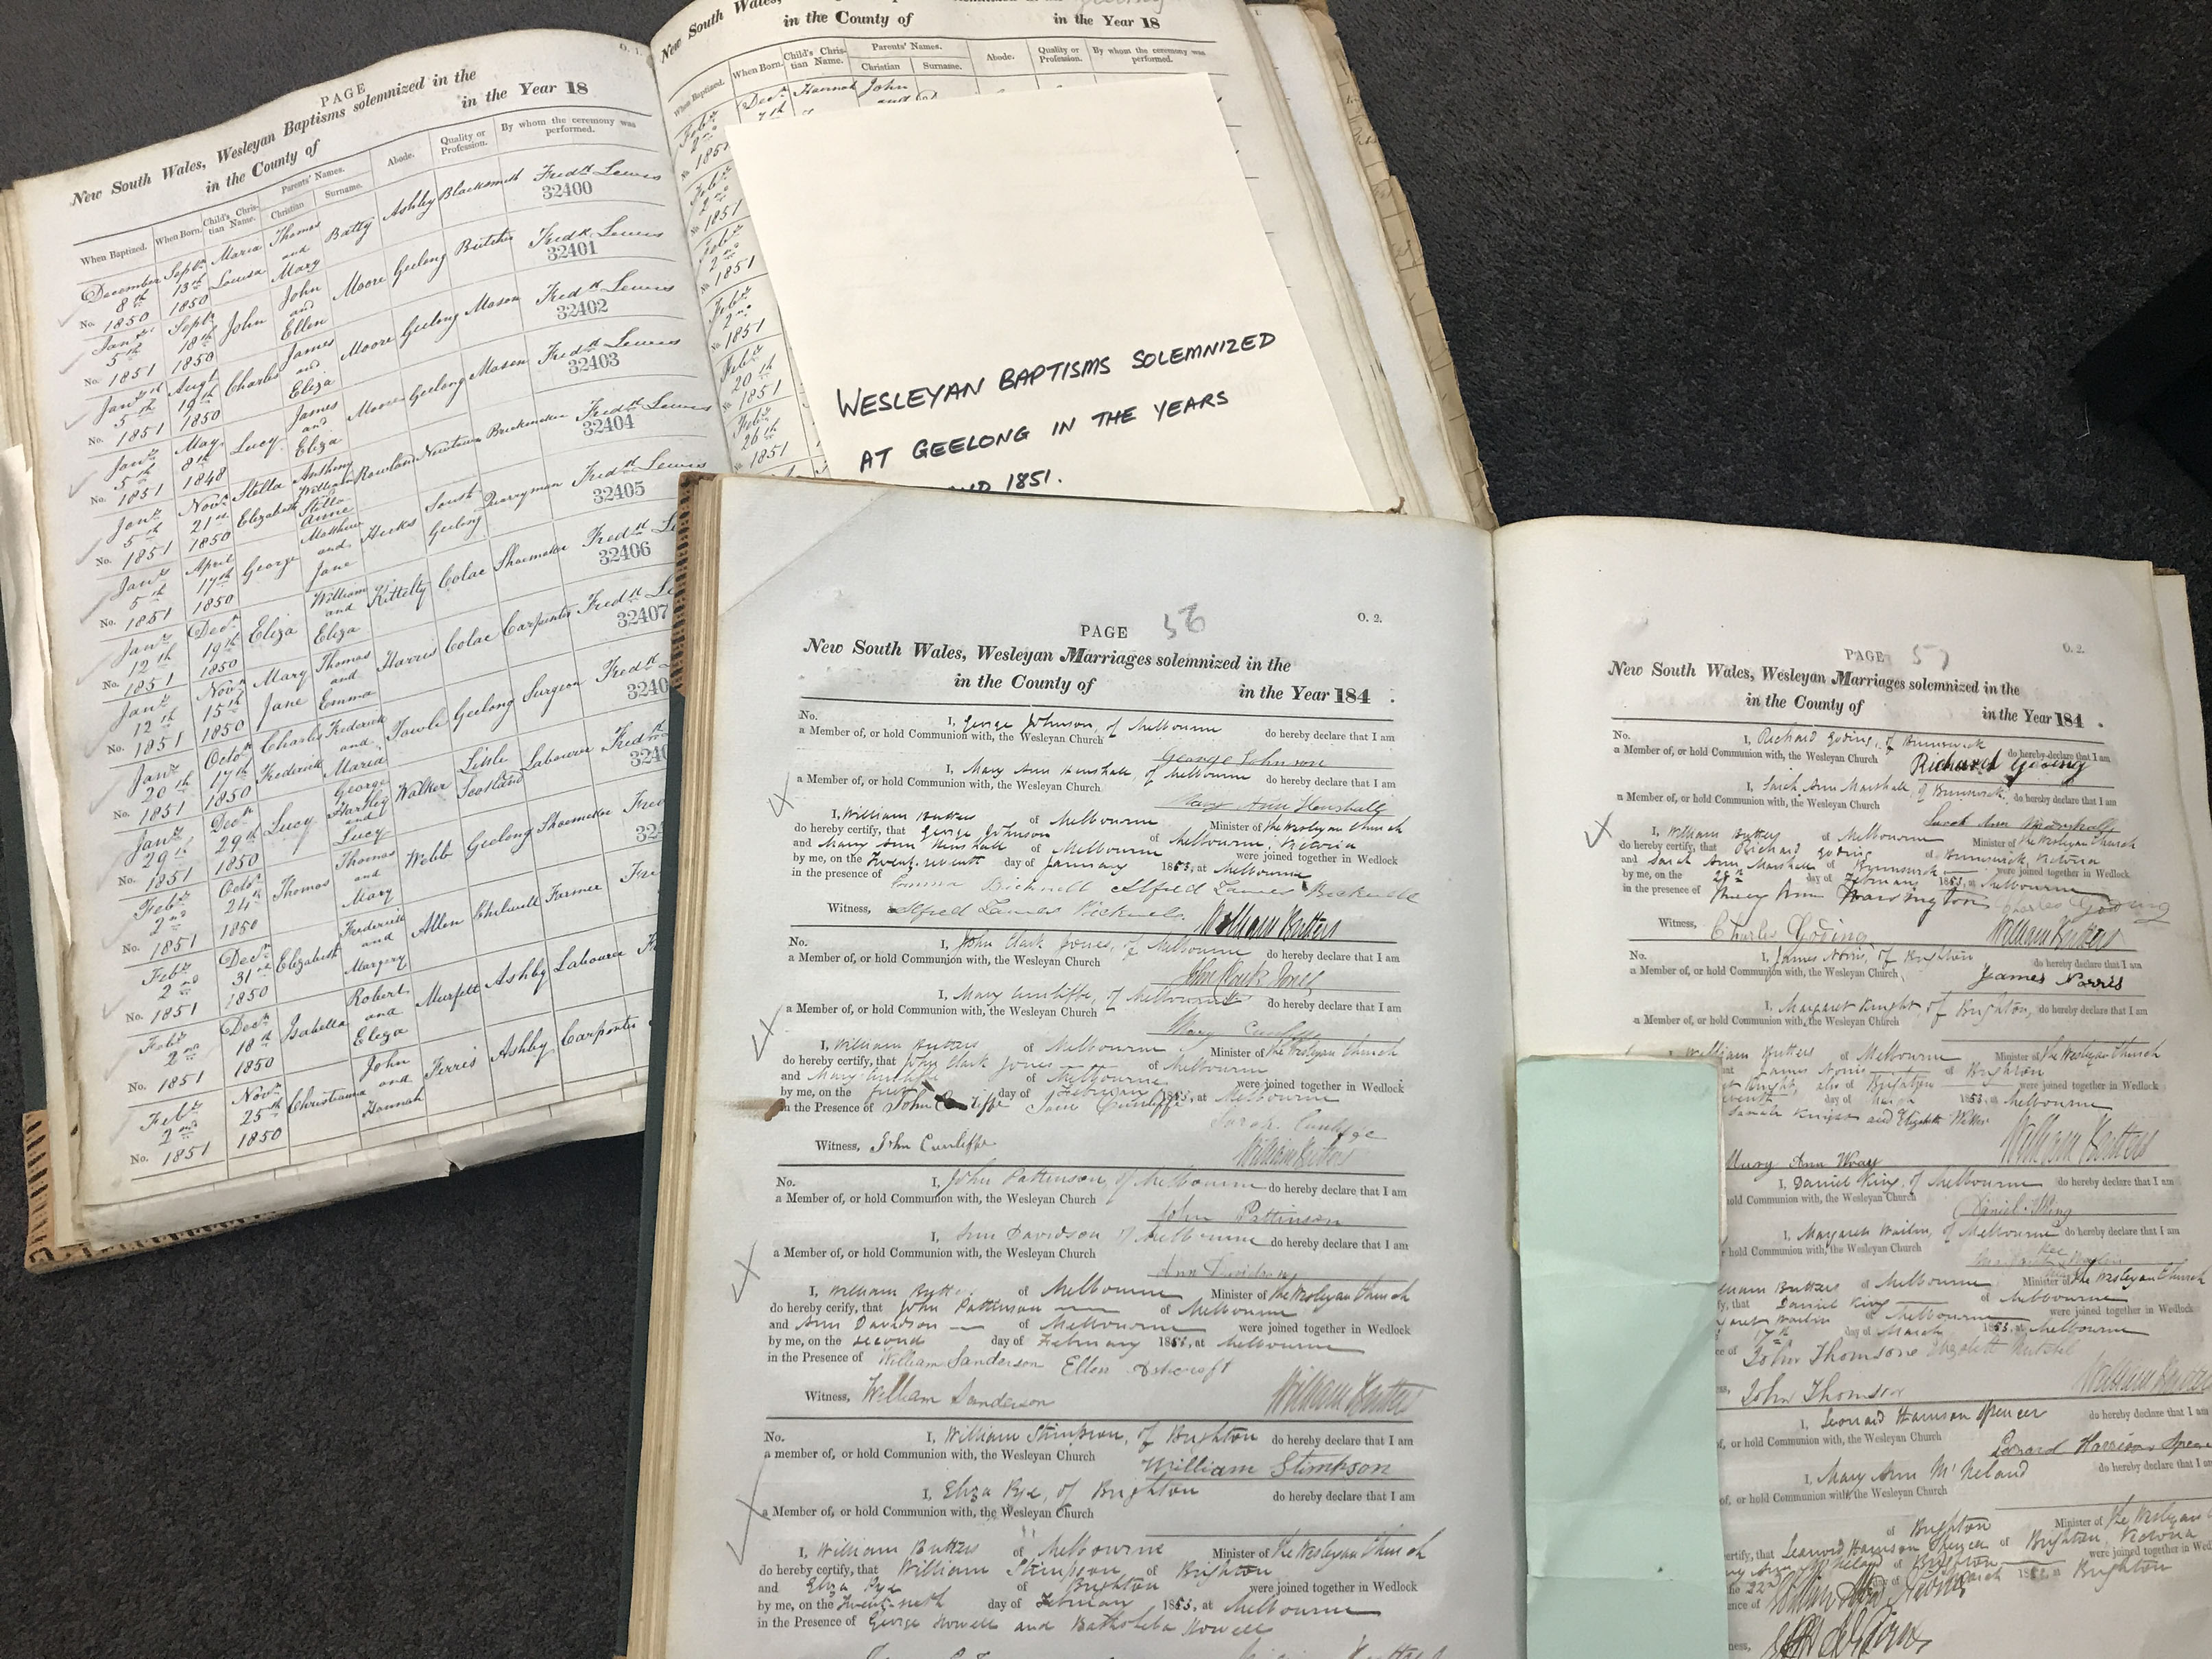 PAGE
New South Wales, Wesleyan Baptisms solemnized in the
in the County of in the Year 18
When Baptized. When Born. Child's Chris- tian Name. Parents' Names. Christian Surname. Abode. Quality or Profession. By whom the ceremony was performed.
December 8th 1850 Septr 13th 1850 Maria Louisa Thomas and Mary Batty Ashby Blacksmith Fredk Lewis
No. 32400
Jany 5th 1851 Septr 18th 1850 John John and Ellen Moore Geelong Butcher Fredk Lewis
No. 32401
Jany 5th 1851 Augt 19th 1850 Charles James and Eliza Moore Geelong Mason Fredk Lewis
No. 32402
Jany 5th 1851 May 8th 1848 Lucy James and Eliza Moore Geelong Mason Fredk Lewis
No. 32403
Jany 5th 1851 Novr 21st 1850 Stella Elizabeth Anthony William Stella Anne Newtown Brickmaker Fredk Lewis
No. 32404
Jany 5th 1851 April 17th 1850 George Matthew and Jane Hicks South Geelong Quarryman Fredk Lewis
No. 32405
Jany 12th 1851 Decr 19th 1850 Eliza William and Eliza Kittelty Colac Shoemaker Fredk Le
No. 32406
Jany 12th 1851 Novr 15th 1850 Mary Jane Thomas and Emma Harris Colac Carpenter Fredk Le
No. 32407
Jany 20th 1851 Octr 17th 1850 Charles Frederick Frederick and Maria Towle Geelong Surgeon Fredk
No. 3240
Jany 29th 1851 Decr 29th 1850 Lucy George Hartley and Lucy Walker Little Scotland Labourer Fredk
No. 3240
Feby 2nd 1851 Octr 24th 1850 Thomas Thomas and Mary Webb Geelong Shoemaker Fred
No. 324
Feby 2nd 1851 Decr 31st 1850 Elizabeth Frederick and Margery Allen Chilwell Farmer Fre
No.
Feby 2nd 1851 Decr 18th 1850 Isabella Robert and Eliza Murfett Ashby Labourer
No.
Feby 2nd 1851 Novr 25th 1850 Christianna John and Hannah Ferris Ashby Carpenter
No.
New South Wales,
in the County of in the Year 18
When Baptized. When Born. Child's Chris- tian Name. Parents' Names. Christian Surname. Abode. Quality or Profession. By whom the ceremony was performed.
Feby 2nd 1851 Decr 7th Hannah John and
Feby 2nd 1851
Feby 2nd 1851
Feby 2nd 1851
Feby 20th 1851
Feby 26th 1851
WESLEYAN BAPTISMS SOLEMNIZED
AT GEELONG IN THE YEARS
1851.
PAGE 56 O. 2.
New South Wales, Wesleyan Marriages solemnized in the
in the County of in the Year 184 .
No. I, George Johnson, of Melbourne do hereby declare that I am
a Member of, or hold Communion with, the Wesleyan Church
George Johnson
I, Mary Ann Henshall, of Melbourne do hereby declare that I am
a Member of, or hold Communion with, the Wesleyan Church
Mary Ann Henshall
I, William Butters of Melbourne Minister of the Wesleyan Church
do hereby certify, that George Johnson of Melbourne
and Mary Ann Henshall of Melbourne, Victoria
by me, on the Twenty-seventh day of January 1853, at Melbourne were joined together in Wedlock
in the presence of Emma Bicknell Alfred James Bicknell
Witness, Alfred James Bicknell William Butters
No. I, John Clark Jones, of Melbourne do hereby declare that I am
a Member of, or hold Communion with, the Wesleyan Church
John Clark Jones
I, Mary Cunliffe, of Melbourne do hereby declare that I am
a Member of, or hold Communion with, the Wesleyan Church
Mary Cunliffe
I, William Butters of Melbourne Minister of the Wesleyan Church
do hereby certify, that John Clark Jones of Melbourne
and Mary Cunliffe of Melbourne were joined together in Wedlock
by me, on the first day of February 1853, at Melbourne
in the Presence of John Cunliffe Jane Cunliffe
Sarah Cunliffe
Witness, John Cunliffe William Butters
No. I, John Pattinson, of Melbourne do hereby declare that I am
a Member of, or hold Communion with, the Wesleyan Church
John Pattinson
I, Ann Davidson of Melbourne do hereby declare that I am
a Member of, or hold Communion with, the Wesleyan Church
Ann Davidson
I, William Butters of Melbourne Minister of the Wesleyan Church
do hereby cerify, that John Pattinson of Melbourne
and Ann Davidson of Melbourne were joined together in Wedlock
by me, on the second day of February 1853, at Melbourne
in the Presence of William Sanderson Ellen Ashcroft
Witness, William Sanderson William Butters
No. I, William Stimpson, of Brighton do hereby declare that I am
a member of, or hold Communion with, the Wesleyan Church
William Stimpson
I, Eliza Pye, of Brighton do hereby declare that I am
a Member of, or hold Communion with, the Wesleyan Church
I, William Butters of Melbourne Minister of the Wesleyan Church
do hereby certify, that William Stimpson of Brighton
and Eliza Pye of Brighton were joined together in Wedlock
by me, on the day of February 1853, at Melbourne
in the Presence of George Howell and Bathsheba Howell
PAGE 57 O. 2.
New South Wales, Wesleyan Marriages solemnized in the
in the County of in the Year 184 .
No. I, Richard Goding, of Brunswick do hereby declare that I am
a Member of, or hold Communion with, the Wesleyan Church
Richard Goding
I, Sarah Ann Marshall, of Brunswick, do hereby declare that I am
a Member of, or hold Communion with, the Wesleyan Church
Sarah Ann Marshall
I, William Butters of Melbourne Minister of the Wesleyan Church
do hereby certify, that Richard Goding of Brunswick, Victoria
and Sarah Ann Marshall of Brunswick were joined together in Wedlock
by me, on the 28th day of February 1853, at Melbourne
in the presence of Mary Ann Charles Goding
Witness, Charles Goding William Butters
No. I, James Norris, of Brighton do hereby declare that I am
a Member of, or hold Communion with, the Wesleyan Church
James Norris
I, Margaret Knight of Brighton, do hereby declare that I am
a Member of, or hold Communion with, the Wesleyan Church
William Butters of Melbourne Minister of the Wesleyan Church
at James Norris of Brighton
Knight, also of Brighton were joined together in Wedlock
day of March 1853, at Melbourne
Knight and Elizabeth
William Butters
Mary Ann Wray
I, Daniel King, of Melbourne do hereby declare that I am
hold Communion with, the Wesleyan Church
Daniel King
I, Margaret of Melbourne do hereby declare that I am
or hold Communion with, the Wesleyan Church
William Butters of Melbourne Minister of the Wesleyan Church
fy, that Daniel King of Melbourne
of Melbourne were joined together in Wedlock
17th day of March 1853, at Melbourne
ce of John Thomson Elizabeth
John Thomson William Butters
I, Leonard Harrison Spencer do hereby declare that I am
of, or hold Communion with, the Wesleyan Church
Leonard Harrison Spen
I, Mary Ann do hereby declare that I am
of, or hold Communion with, the Wesleyan Church
of Brighton Minister of the Wesleyan
ertify, that Leonard Harrison Spencer of Brighton, Victoria
of Brighton were joined together in Wed
he 22nd March 185 at Brighton
ence of
ness,